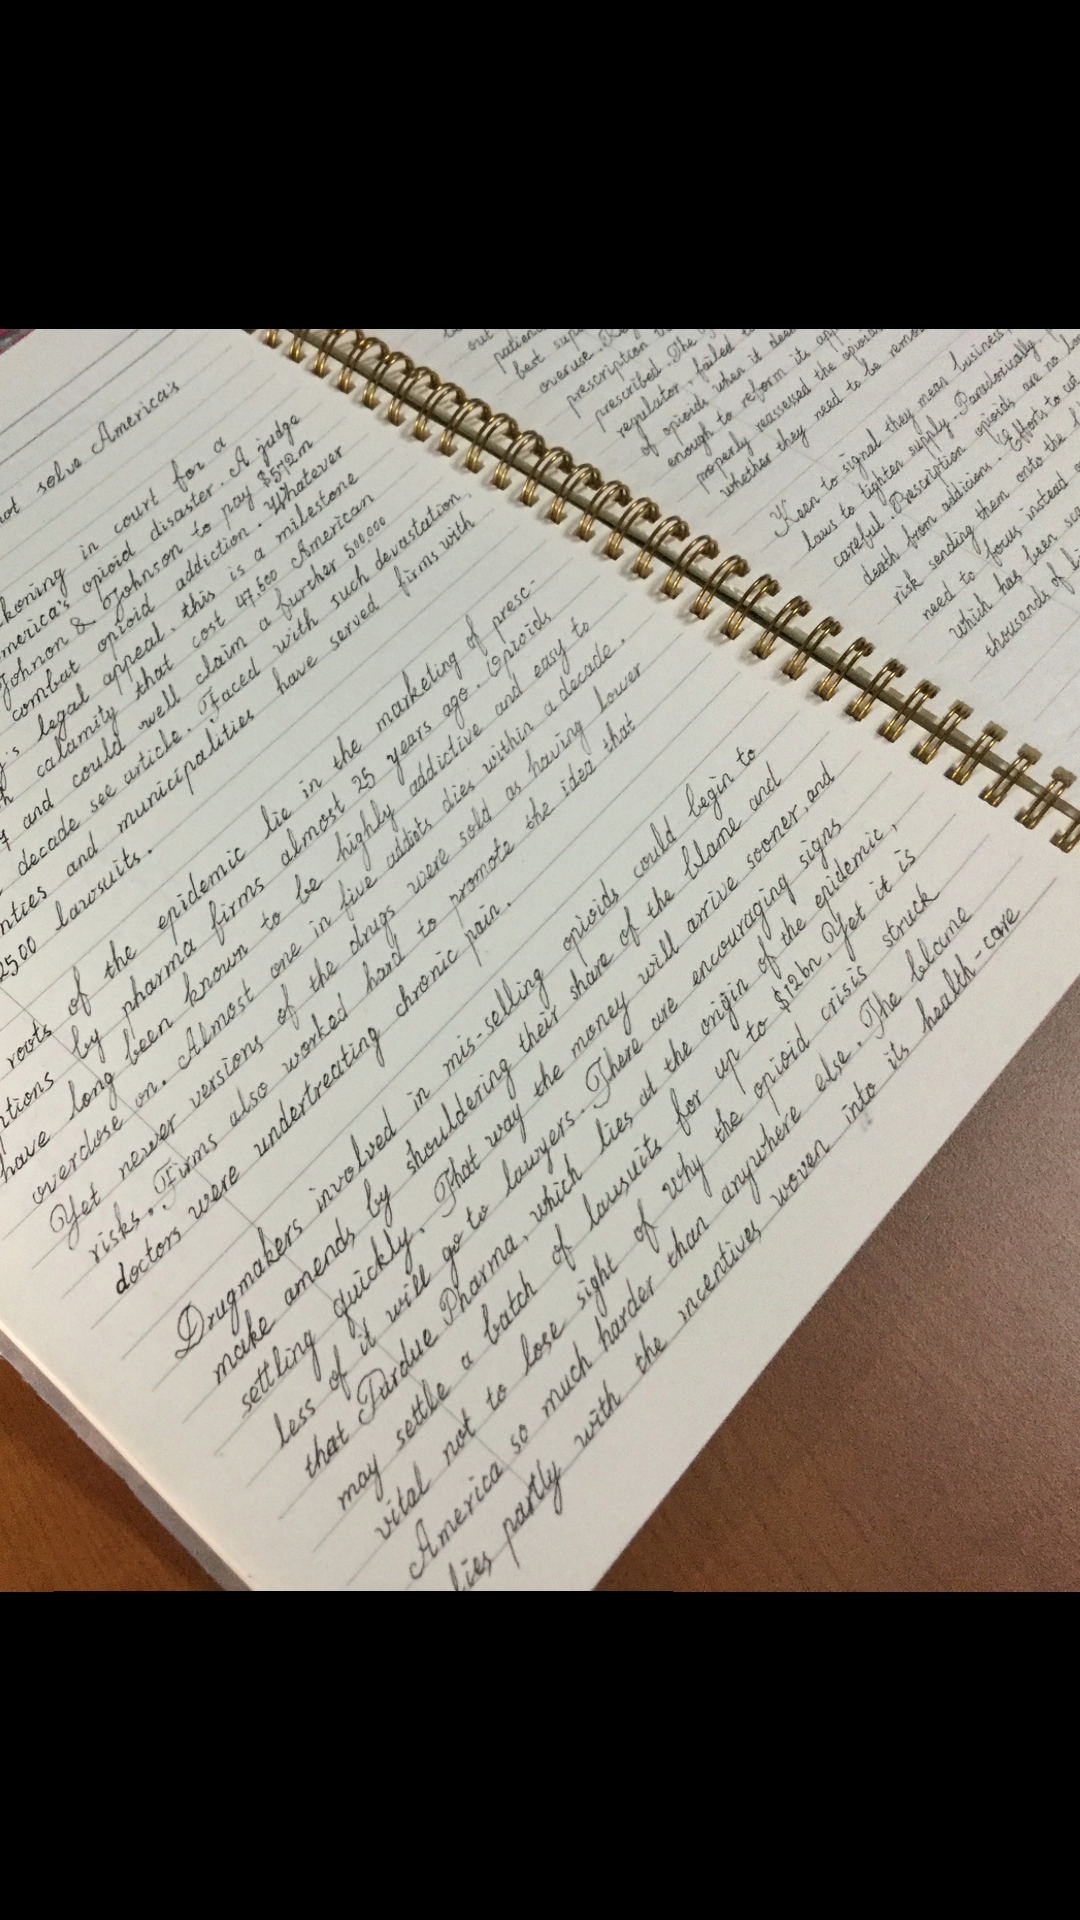 not solve America's
ckoning in court for a
merica's opioid disaster. A judge
Johnon & Johnson to pay $572m
combat opioid addiction. Whatever
y's legal appeal, this is a milestone
calamity that cost 47,600 American
7 and could well claim a further 500,000
decade see article. Faced with such devastation,
nties and municipalities have served firms with
2500 lawsuits.
roots of the epidemic lie in the marketing of presc-
ptions by pharma firms almost 25 years ago. Opioids
have long been known to be highly addictive and easy to
overdose on. Almost one in five addicts dies within a decade.
Yet newer versions of the drugs were sold as having lower
risks. Firms also worked hard to promote the idea that
doctors were undertreating chronic pain.
Drugmakers involved in mis-selling opioids could begin to
make amends by shouldering their share of the blame and
settling quickly. That way the money will arrive sooner, and
less of it will go to lawyers. There are encouraging signs
that Purdue Pharma, which lies at the origin of the epidemic,
may settle a batch of lawsuits for up to $12bn. Yet it is
vital not to lose sight of why the opioid crisis struck
America so much harder than anywhere else. The blame
lies partly with the incentives woven into its health-care
out
patien
best sup
overuse.
prescription
prescribed. The
regulator, failed to
of opioids when it deci
enough to reform its app
properly reassessed the opioi
whether they need to be remo
Keen to signal they mean business,
laws to tighten supply. Paradoxically
careful. Prescription opioids are no lon
death from addictions. Efforts to cut
risk sending them onto the
need to focus instead
which has been sca
thousands of li